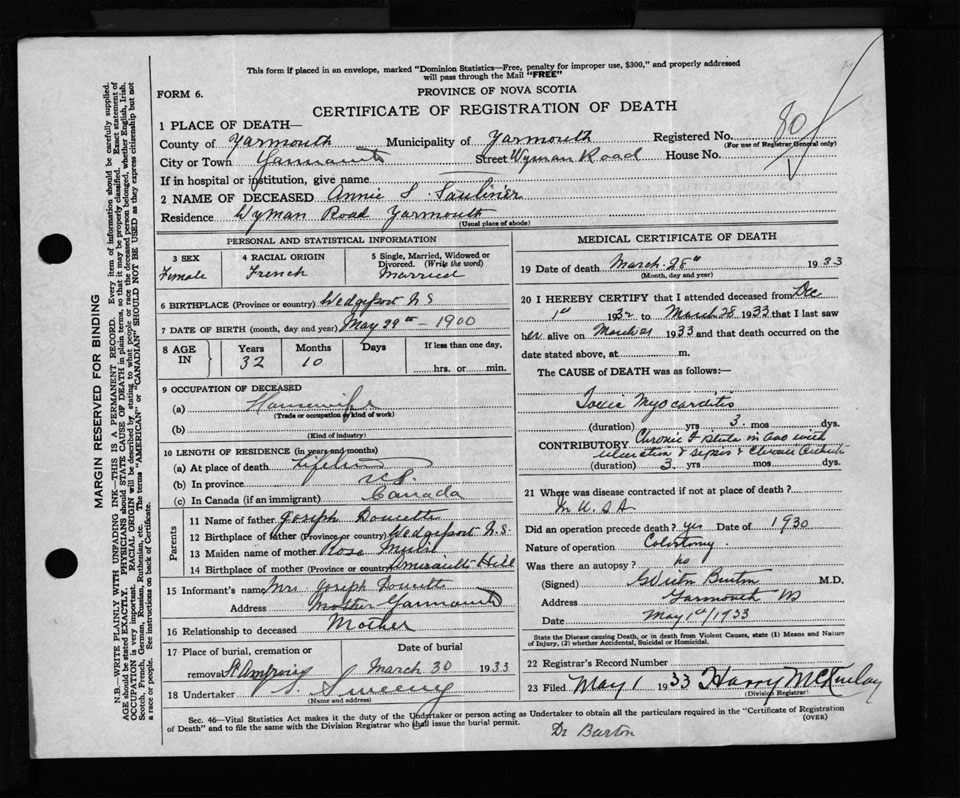 This form if placed in an envelope, marked "Dominion Statistics—Free, penalty for improper use, $300," and properly addressed
will pass through the Mail "FREE"
FORM 6.
PROVINCE OF NOVA SCOTIA
CERTIFICATE OF REGISTRATION OF DEATH
1 PLACE OF DEATH—
County of Yarmouth Municipality of Yarmouth Registered No. 80
(For use of Registrar General only)
City or Town Yarmouth Street Wyman Road House No.
If in hospital or institution, give name
2 NAME OF DECEASED Annie S.
Residence Wyman Road Yarmouth
(Usual place of abode)
PERSONAL AND STATISTICAL INFORMATION
3 SEX 4 RACIAL ORIGIN 5 Single, Married, Widowed or
Divorced. (Write the word)
Female French Married
6 BIRTHPLACE (Province or country) Wedgeport N S
7 DATE OF BIRTH (month, day and year) May 29th - 1900
8 AGE IN Years Months Days If less than one day,
32 10 hrs. or min.
9 OCCUPATION OF DECEASED
(a) Housewife
(Trade or occupation or kind of work)
(b)
(Kind of industry)
10 LENGTH OF RESIDENCE (in years and months)
(a) At place of death lifetime
(b) In province N.S.
(c) In Canada (if an immigrant) Canada
Parents
11 Name of father Joseph Doucette
12 Birthplace of father (Province or country) Wedgeport N.S.
13 Maiden name of mother Rose
14 Birthplace of mother (Province or country) Hill
15 Informant's name Mrs Joseph Doucette
Address Mother Yarmouth
16 Relationship to deceased Mother
17 Place of burial, cremation or Date of burial
removal St Ambrose March 30 1933
18 Undertaker Sweeny
(Name and address)
MEDICAL CERTIFICATE OF DEATH
19 Date of death March 28th 1933
(Month, day and year)
20 I HEREBY CERTIFY that I attended deceased from Dec
1st 1932 to March 28 1933 that I last saw
her alive on March 21 1933 and that death occurred on the
date stated above, at m.
The CAUSE of DEATH was as follows:
Toxic Myocarditis
(duration) yrs 3 mos dys.
CONTRIBUTORY Chronic Fistula in Ano with
ulceration & sepsis & Chronic
(duration) 3 yrs mos dys.
21 Where was disease contracted if not at place of death?
In U.S.A
Did an operation precede death? yes Date of 1930
Nature of operation Colostomy.
Was there an autopsy? no
(Signed) Burton M.D.
Address Yarmouth NS
Date May 1st/1933
State the Disease causing Death, or in death from Violent Causes, state (1) Means and Nature
of Injury, (2) whether Accidental, Suicidal or Homicidal.
22 Registrar's Record Number
23 Filed May 1 1933 Harry McKinlay
(Division Registrar)
Sec. 46—Vital Statistics Act makes it the duty of the Undertaker or person acting as Undertaker to obtain all the particulars required in the "Certificate of Registration
of Death" and to file the same with the Division Registrar who shall issue the burial permit. (OVER)
Dr Burton
MARGIN RESERVED FOR BINDING
N.B.—WRITE PLAINLY WITH UNFADING INK—THIS IS A PERMANENT RECORD. Every item of information should be carefully supplied.
AGE should be stated EXACTLY. PHYSICIANS should STATE CAUSE OF DEATH in plain terms, so that it may be properly classified. Exact statement of
OCCUPATION is very important. RACIAL ORIGIN will be described by stating to what people or race the deceased person belonged, whether English, Irish,
Scotch, French, German, Russian, Ruthenian, etc. The terms "AMERICAN" or "CANADIAN" SHOULD NOT BE USED as they express citizenship but not
a race or people. See instructions on back of Certificate.